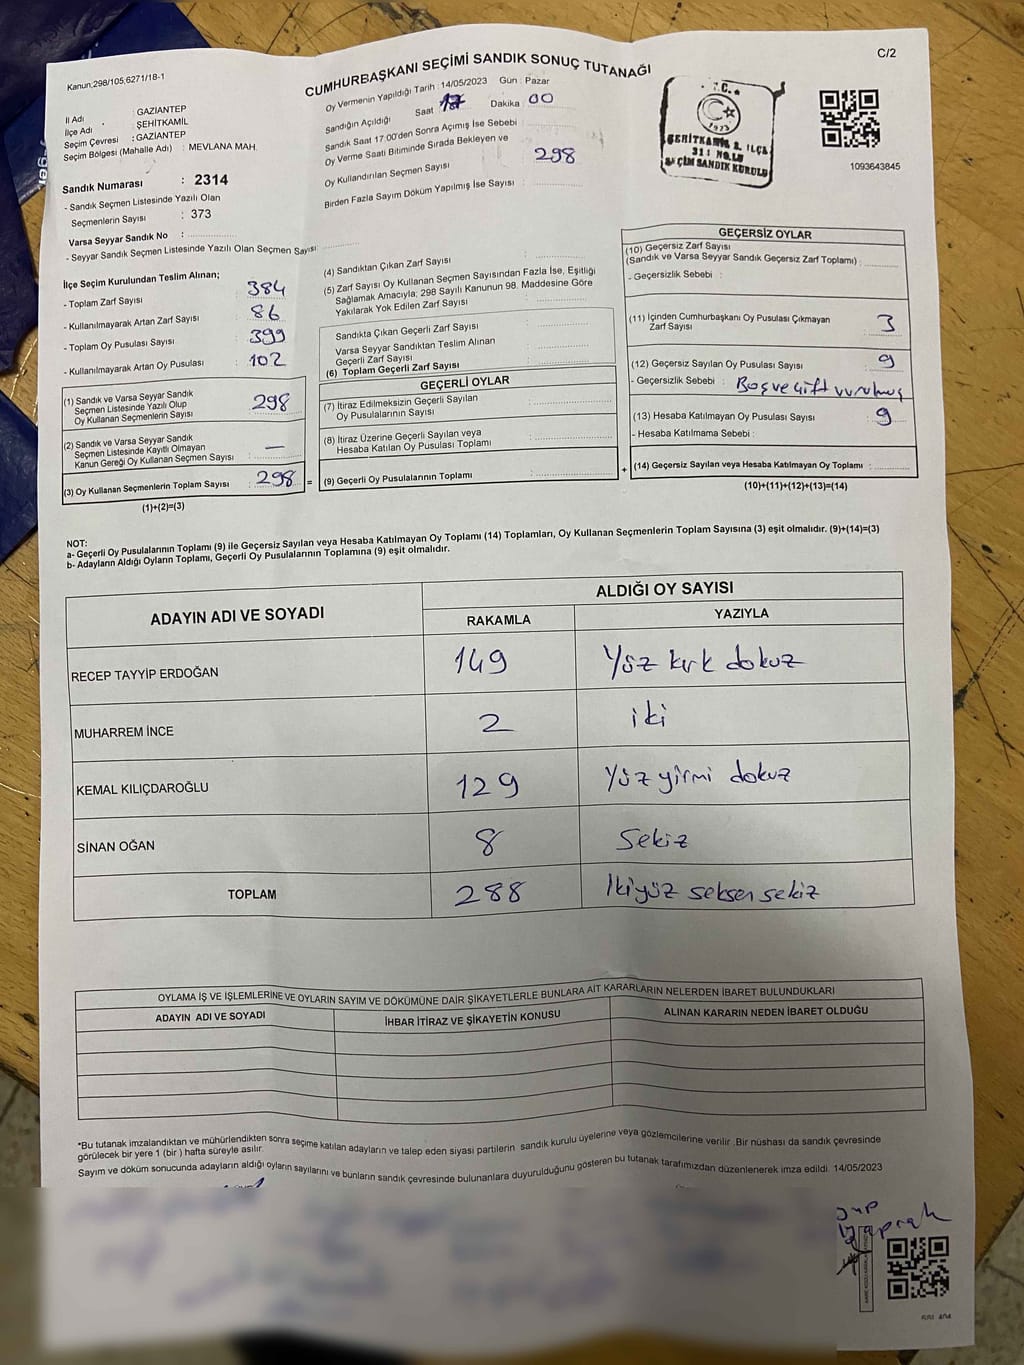 Kanun,298/105,6271/18-1
C/2
CUMHURBAŞKANI SEÇİMİ SANDIK SONUÇ TUTANAĞI
İl Adı : GAZİANTEP
İlçe Adı : ŞEHİTKAMİL
Seçim Çevresi : GAZİANTEP
Seçim Bölgesi (Mahalle Adı) : MEVLANA MAH.
Sandık Numarası : 2314
- Sandık Seçmen Listesinde Yazılı Olan
Seçmenlerin Sayısı : 373
Varsa Seyyar Sandık No :
- Seyyar Sandık Seçmen Listesinde Yazılı Olan Seçmen Sayısı:
Oy Vermenin Yapıldığı Tarih : 14/05/2023 Gün : Pazar
Sandığın Açıldığı Saat 17 Dakika 00
Sandık Saat 17.00'den Sonra Açımış İse Sebebi :
Oy Verme Saati Bitiminde Sırada Bekleyen ve
Oy Kullandırılan Seçmen Sayısı 298
Birden Fazla Sayım Döküm Yapılmış İse Sayısı :
T.C.
1923
ŞEHİTKAMİL 2. İLÇE
311 NO.LU
SEÇİM SANDIK KURULU
1093643845
İlçe Seçim Kurulundan Teslim Alınan;
- Toplam Zarf Sayısı 384
- Kullanılmayarak Artan Zarf Sayısı : 86
- Toplam Oy Pusulası Sayısı : 399
- Kullanılmayarak Artan Oy Pusulası 102
(1) Sandık ve Varsa Seyyar Sandık
Seçmen Listesinde Yazılı Olup
Oy Kullanan Seçmenlerin Sayısı 298
(2) Sandık ve Varsa Seyyar Sandık
Seçmen Listesinde Kayıtlı Olmayan
Kanun Gereği Oy Kullanan Seçmen Sayısı : —
(3) Oy Kullanan Seçmenlerin Toplam Sayısı : 298 =
(1)+(2)=(3)
(4) Sandıktan Çıkan Zarf Sayısı :
(5) Zarf Sayısı Oy Kullanan Seçmen Sayısından Fazla İse, Eşitliği
Sağlamak Amacıyla; 298 Sayılı Kanunun 98. Maddesine Göre
Yakılarak Yok Edilen Zarf Sayısı :
Sandıkta Çıkan Geçerli Zarf Sayısı :
Varsa Seyyar Sandıktan Teslim Alınan
Geçerli Zarf Sayısı :
(6) Toplam Geçerli Zarf Sayısı :
GEÇERLİ OYLAR
(7) İtiraz Edilmeksizin Geçerli Sayılan
Oy Pusulalarının Sayısı :
(8) İtiraz Üzerine Geçerli Sayılan veya
Hesaba Katılan Oy Pusulası Toplamı :
(9) Geçerli Oy Pusulalarının Toplamı : +
GEÇERSİZ OYLAR
(10) Geçersiz Zarf Sayısı
(Sandık ve Varsa Seyyar Sandık Geçersiz Zarf Toplamı) :
- Geçersizlik Sebebi :
(11) İçinden Cumhurbaşkanı Oy Pusulası Çıkmayan
Zarf Sayısı : 3
(12) Geçersiz Sayılan Oy Pusulası Sayısı : 9
- Geçersizlik Sebebi : Boş ve çift vurulmuş
(13) Hesaba Katılmayan Oy Pusulası Sayısı : 9
- Hesaba Katılmama Sebebi :
(14) Geçersiz Sayılan veya Hesaba Katılmayan Oy Toplamı :
(10)+(11)+(12)+(13)=(14)
NOT:
a- Geçerli Oy Pusulalarının Toplamı (9) ile Geçersiz Sayılan veya Hesaba Katılmayan Oy Toplamı (14) Toplamları, Oy Kullanan Seçmenlerin Toplam Sayısına (3) eşit olmalıdır. (9)+(14)=(3)
b- Adayların Aldığı Oyların Toplamı, Geçerli Oy Pusulalarının Toplamına (9) eşit olmalıdır.
ADAYIN ADI VE SOYADI ALDIĞI OY SAYISI
RAKAMLA YAZIYLA
RECEP TAYYİP ERDOĞAN 149 Yüz kırk dokuz
MUHARREM İNCE 2 iki
KEMAL KILIÇDAROĞLU 129 Yüz yirmi dokuz
SİNAN OĞAN 8 Sekiz
TOPLAM 288 İkiyüz seksen sekiz
OYLAMA İŞ VE İŞLEMLERİNE VE OYLARIN SAYIM VE DÖKÜMÜNE DAİR ŞİKAYETLERLE BUNLARA AİT KARARLARIN NELERDEN İBARET BULUNDUKLARI
ADAYIN ADI VE SOYADI İHBAR İTİRAZ VE ŞİKAYETİN KONUSU ALINAN KARARIN NEDEN İBARET OLDUĞU
*Bu tutanak imzalandıktan ve mühürlendikten sonra seçime katılan adayların ve talep eden siyasi partilerin sandık kurulu üyelerine veya gözlemcilerine verilir .Bir nüshası da sandık çevresinde
görülecek bir yere 1 (bir ) hafta süreyle asılır.
Sayım ve döküm sonucunda adayların aldığı oyların sayılarını ve bunların sandık çevresinde bulunanlara duyurulduğunu gösteren bu tutanak tarafımızdan düzenlenerek imza edildi. 14/05/2023